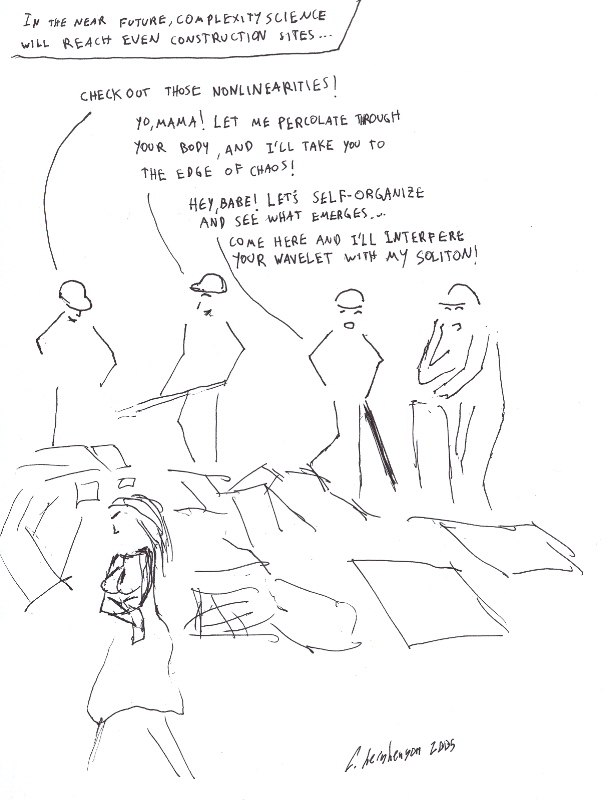 IN THE NEAR FUTURE, COMPLEXITY SCIENCE
WILL REACH EVEN CONSTRUCTION SITES...
CHECK OUT THOSE NONLINEARITIES!
YO, MAMA! LET ME PERCOLATE THROUGH
YOUR BODY, AND I'LL TAKE YOU TO
THE EDGE OF CHAOS!
HEY, BABE! LET'S SELF-ORGANIZE
AND SEE WHAT EMERGES...
COME HERE AND I'LL INTERFERE
YOUR WAVELET WITH MY SOLITON!
C. Gershenson 2005